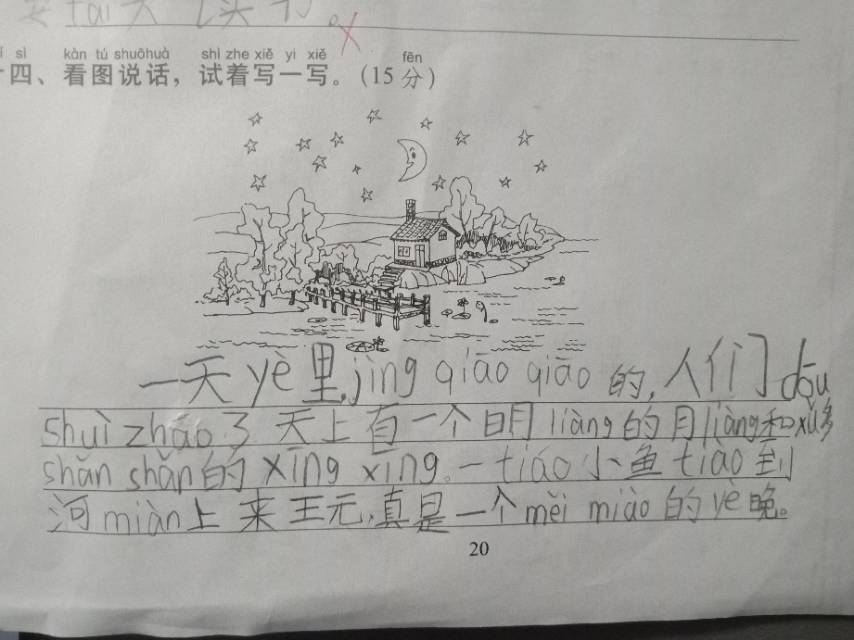 sì kàn tú shuōhuà shì zhe xiě yi xiě fēn
十四、看图说话，试着写一写。（15分）
一天yè里,jìng qiāo qiāo的,人们dōu
shuì zháo了天上有一个明月liàng的月liàng和xǔ多
shǎn shǎn的xīng xīng。一tiáo小鱼tiào到
河miàn上来王元,真是一个měi miào的yè晚。
20